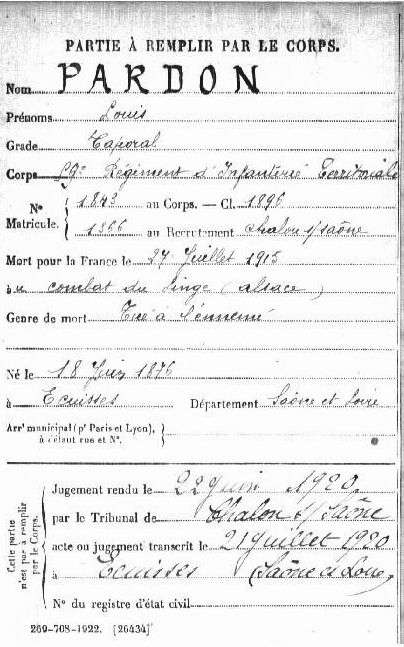 PARTIE À REMPLIR PAR LE CORPS.
Nom PARDON
Prénoms Louis
Grade Caporal
Corps 59e Régiment d'Infanterie Territoriale
N° Matricule. { 1843 au Corps. — Cl. 1896
1366 au Recrutement Chalon s/Saône
Mort pour la France le 27 Juillet 1915
au combat du Linge (alsace)
Genre de mort Tué à l'ennemi
Né le 18 Juin 1876
à Ecuisses Département Saône et Loire
Arrt municipal (pr Paris et Lyon), à défaut rue et N°. {
Cette partie n'est pas à remplir par le Corps.
Jugement rendu le 22 Juin 1920
par le Tribunal de Chalon s/Saône
acte ou jugement transcrit le 21 Juillet 1920
à Ecuisses (Saône et Loire)
N° du registre d'état civil
269-708-1922. [26434]